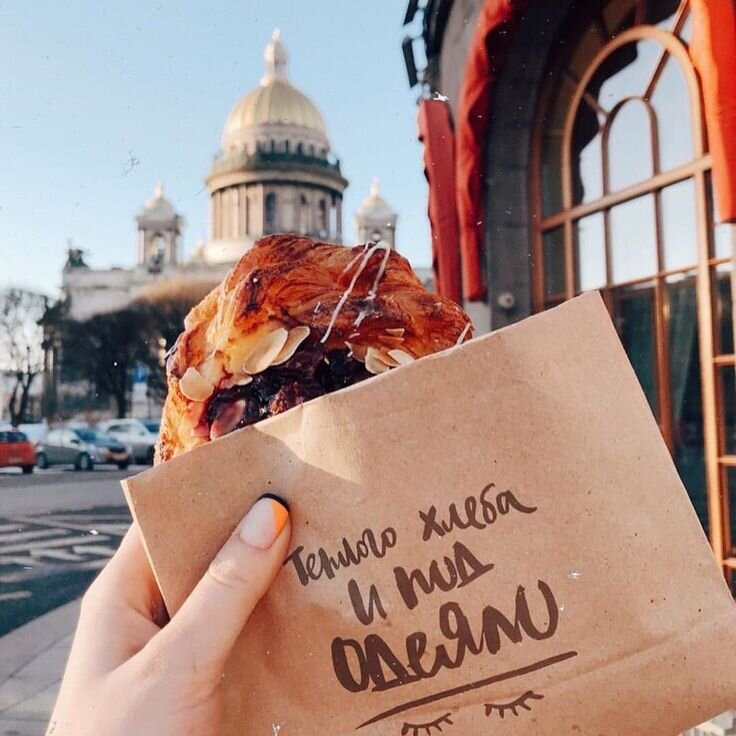 Теплого хлеба
и под
одеяло